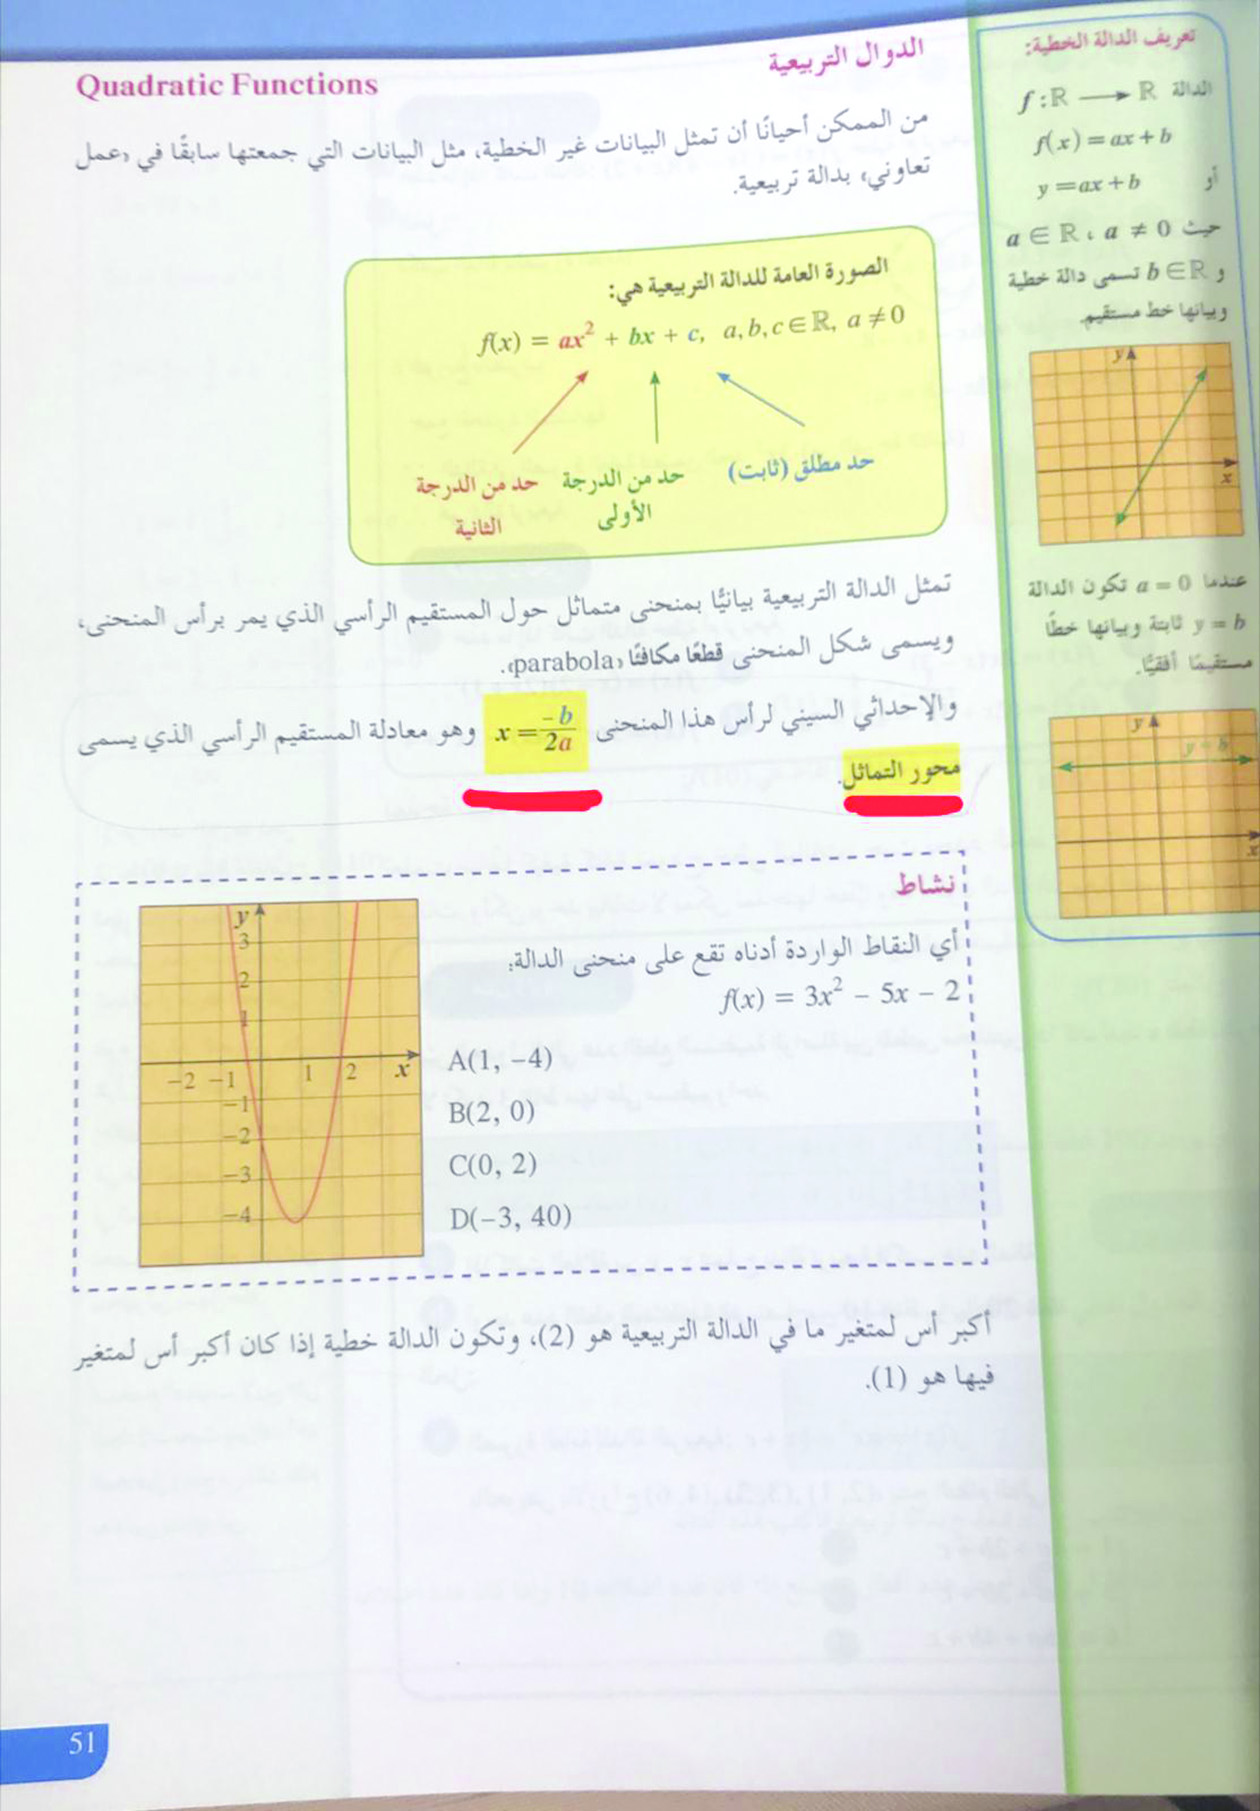 الدوال التربيعية
Quadratic Functions
من الممكن أحيانًا أن تمثل البيانات غير الخطية، مثل البيانات التي جمعتها سابقًا في «عمل
تعاوني» بدالة تربيعية.
الصورة العامة للدالة التربيعية هي:
f(x) = ax² + bx + c, a, b, c ∈ ℝ, a ≠ 0
حد مطلق (ثابت)
حد من الدرجة
الأولى
حد من الدرجة
الثانية
تمثل الدالة التربيعية بيانيًّا بمنحنى متماثل حول المستقيم الرأسي الذي يمر برأس المنحنى،
ويسمى شكل المنحنى قطعًا مكافئًا «parabola».
والإحداثي السيني لرأس هذا المنحنى x = -b/2a وهو معادلة المستقيم الرأسي الذي يسمى
محور التماثل.
نشاط
أي النقاط الواردة أدناه تقع على منحنى الدالة:
f(x) = 3x² − 5x − 2
A(1, −4)
B(2, 0)
C(0, 2)
D(−3, 40)
y
3
2
1
−2 −1 1 2 x
−1
−2
−3
−4
أكبر أس لمتغير ما في الدالة التربيعية هو (2)، وتكون الدالة خطية إذا كان أكبر أس لمتغير
فيها هو (1).
تعريف الدالة الخطية:
الدالة f : ℝ ⟶ ℝ
f(x) = ax + b
أو y = ax + b
حيث a ∈ ℝ ، a ≠ 0
و b ∈ ℝ تسمى دالة خطية
وبيانها خط مستقيم.
y
x
عندما a = 0 تكون الدالة
y = b ثابتة وبيانها خطًا
مستقيمًا أفقيًّا.
y
y = b
x
51